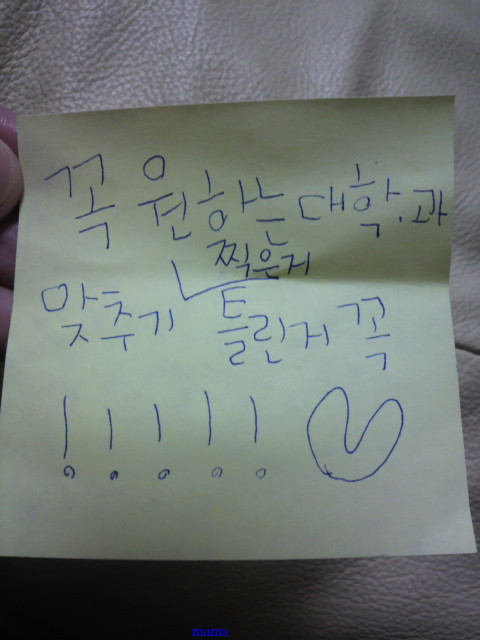 꼭 원하는 대학.과
찍은거
맞추기 틀린거 꼭
!!!!!
mama